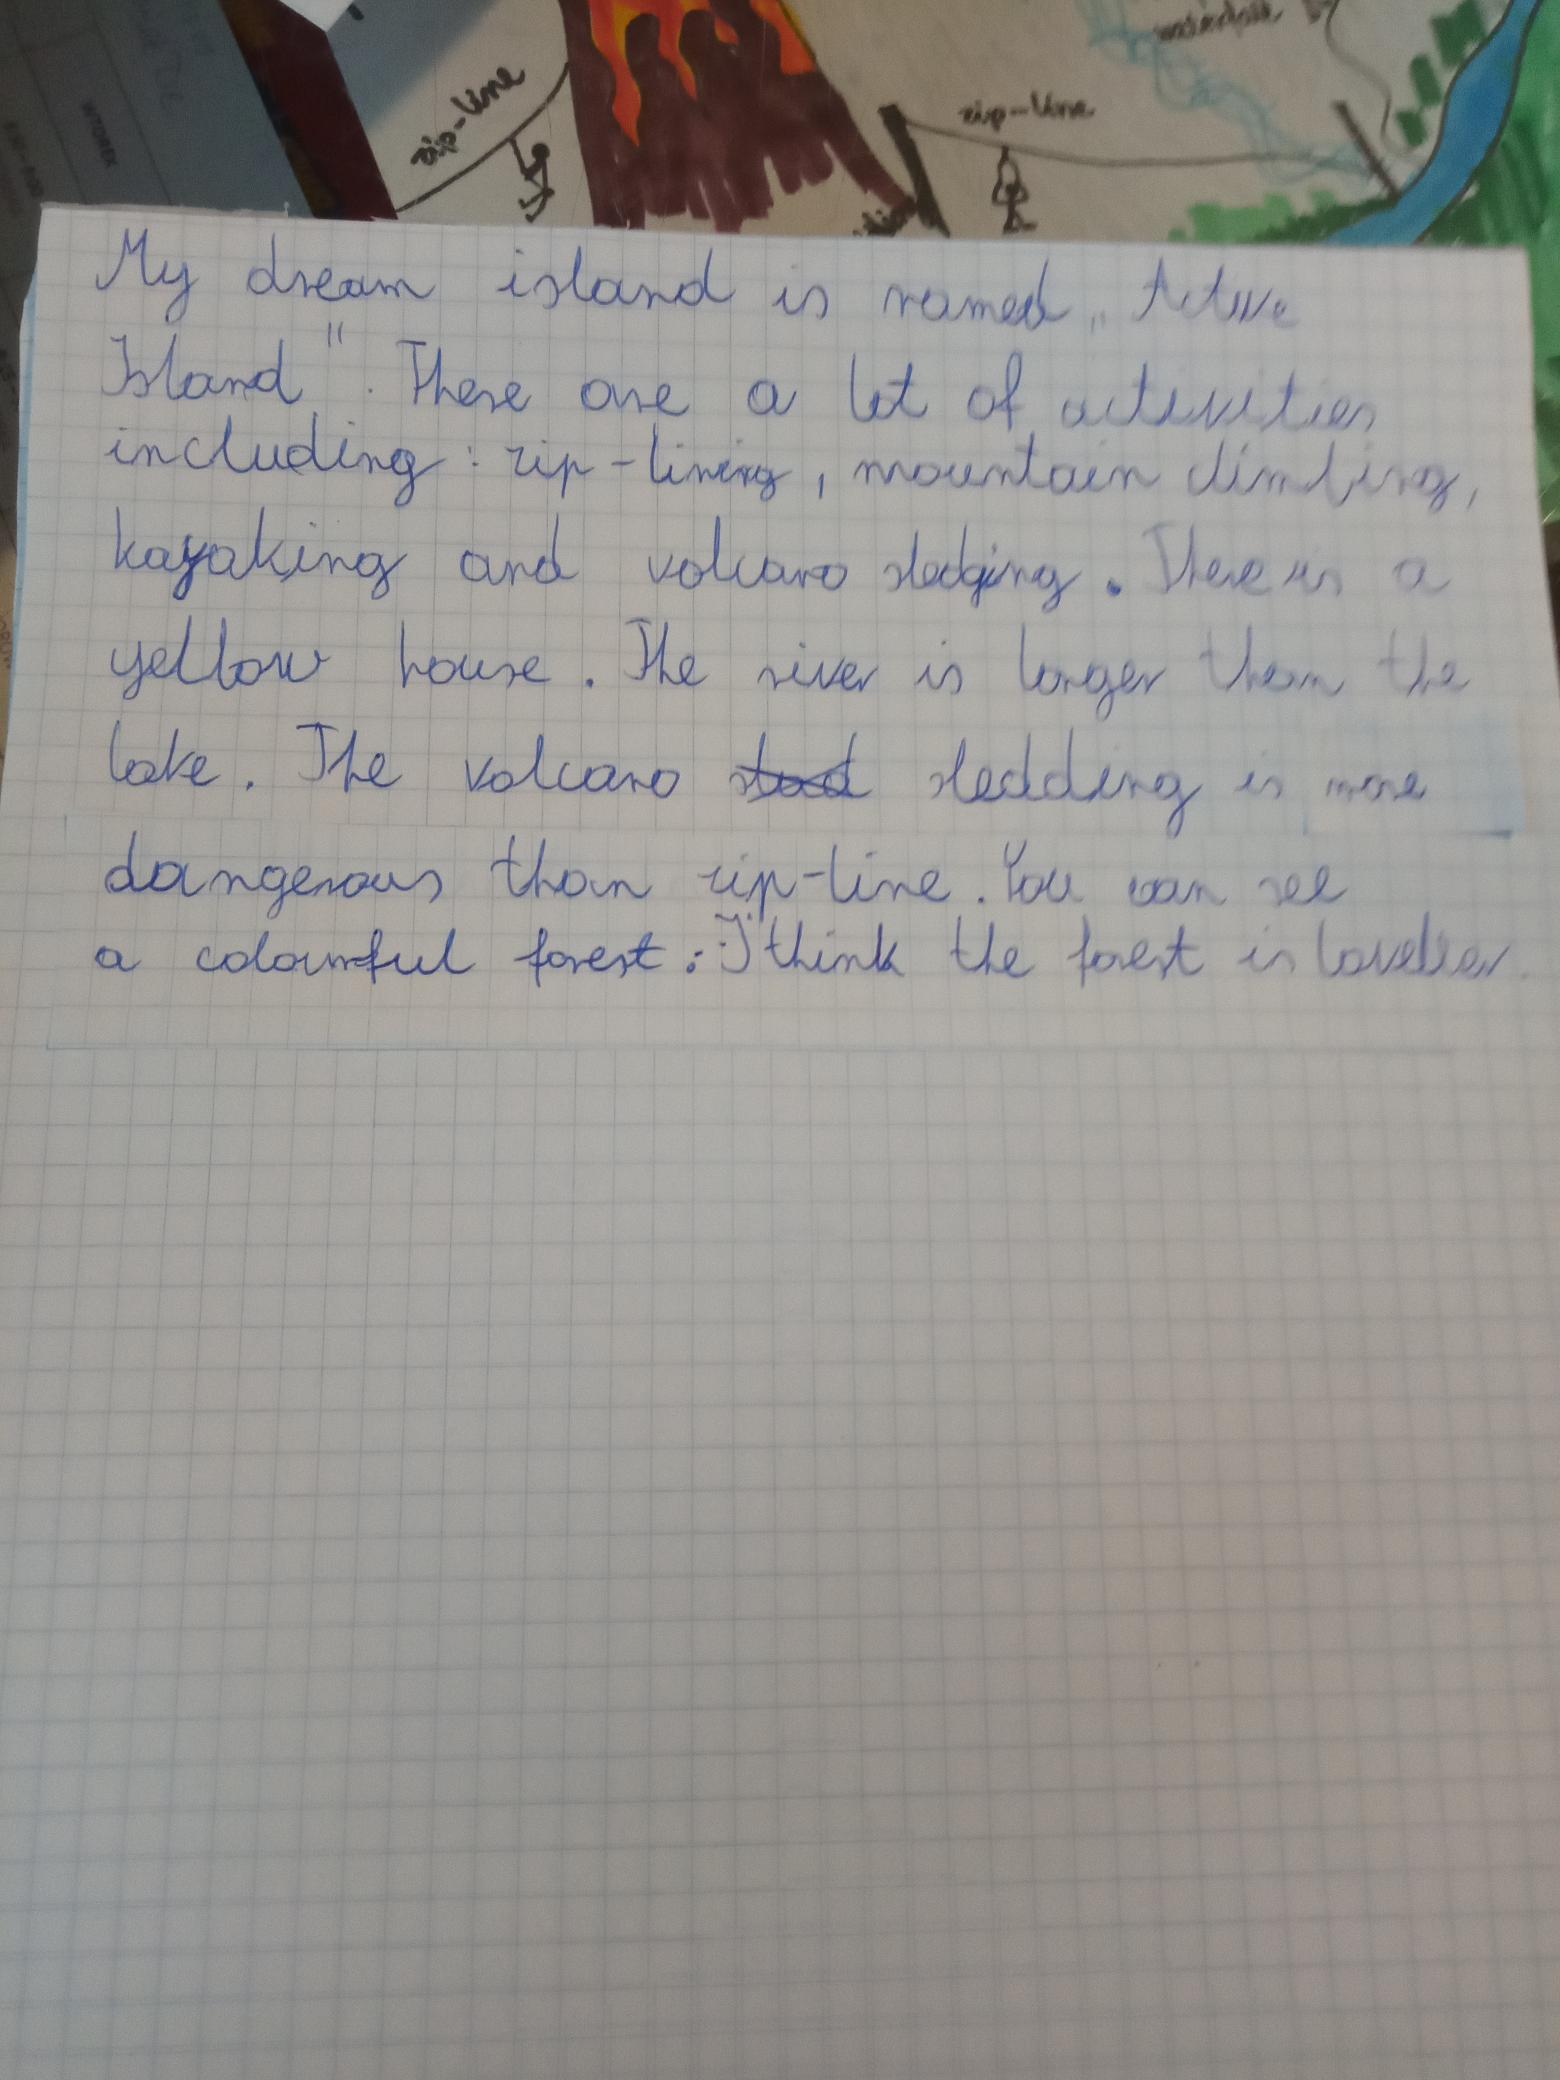 WTOREK
zip-line
zip-line
My dream island is named „Active
Island". There are a lot of activities
including: zip-lining, mountain climbing,
kayaking and volcano sledging. There is a
yellow house. The river is longer than the
lake. The volcano sledding is more
dangerous than zip-line. You can see
a colourful forest. I think the forest is lovelier.